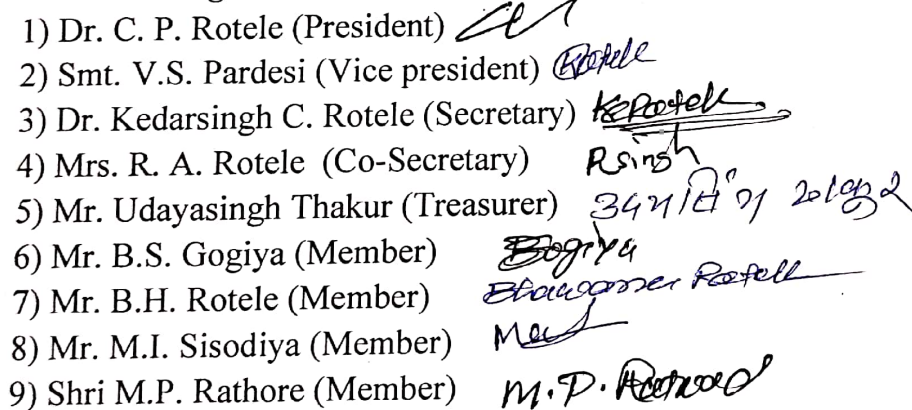 1) Dr. C. P. Rotele (President)
2) Smt. V.S. Pardesi (Vice president) Rotele
3) Dr. Kedarsingh C. Rotele (Secretary) KCRotele
4) Mrs. R. A. Rotele (Co-Secretary) Rsingh
5) Mr. Udayasingh Thakur (Treasurer) उदयसिंग ठाकुर
6) Mr. B.S. Gogiya (Member) Bogiya
7) Mr. B.H. Rotele (Member) Rotele
8) Mr. M.I. Sisodiya (Member)
9) Shri M.P. Rathore (Member) M.P.